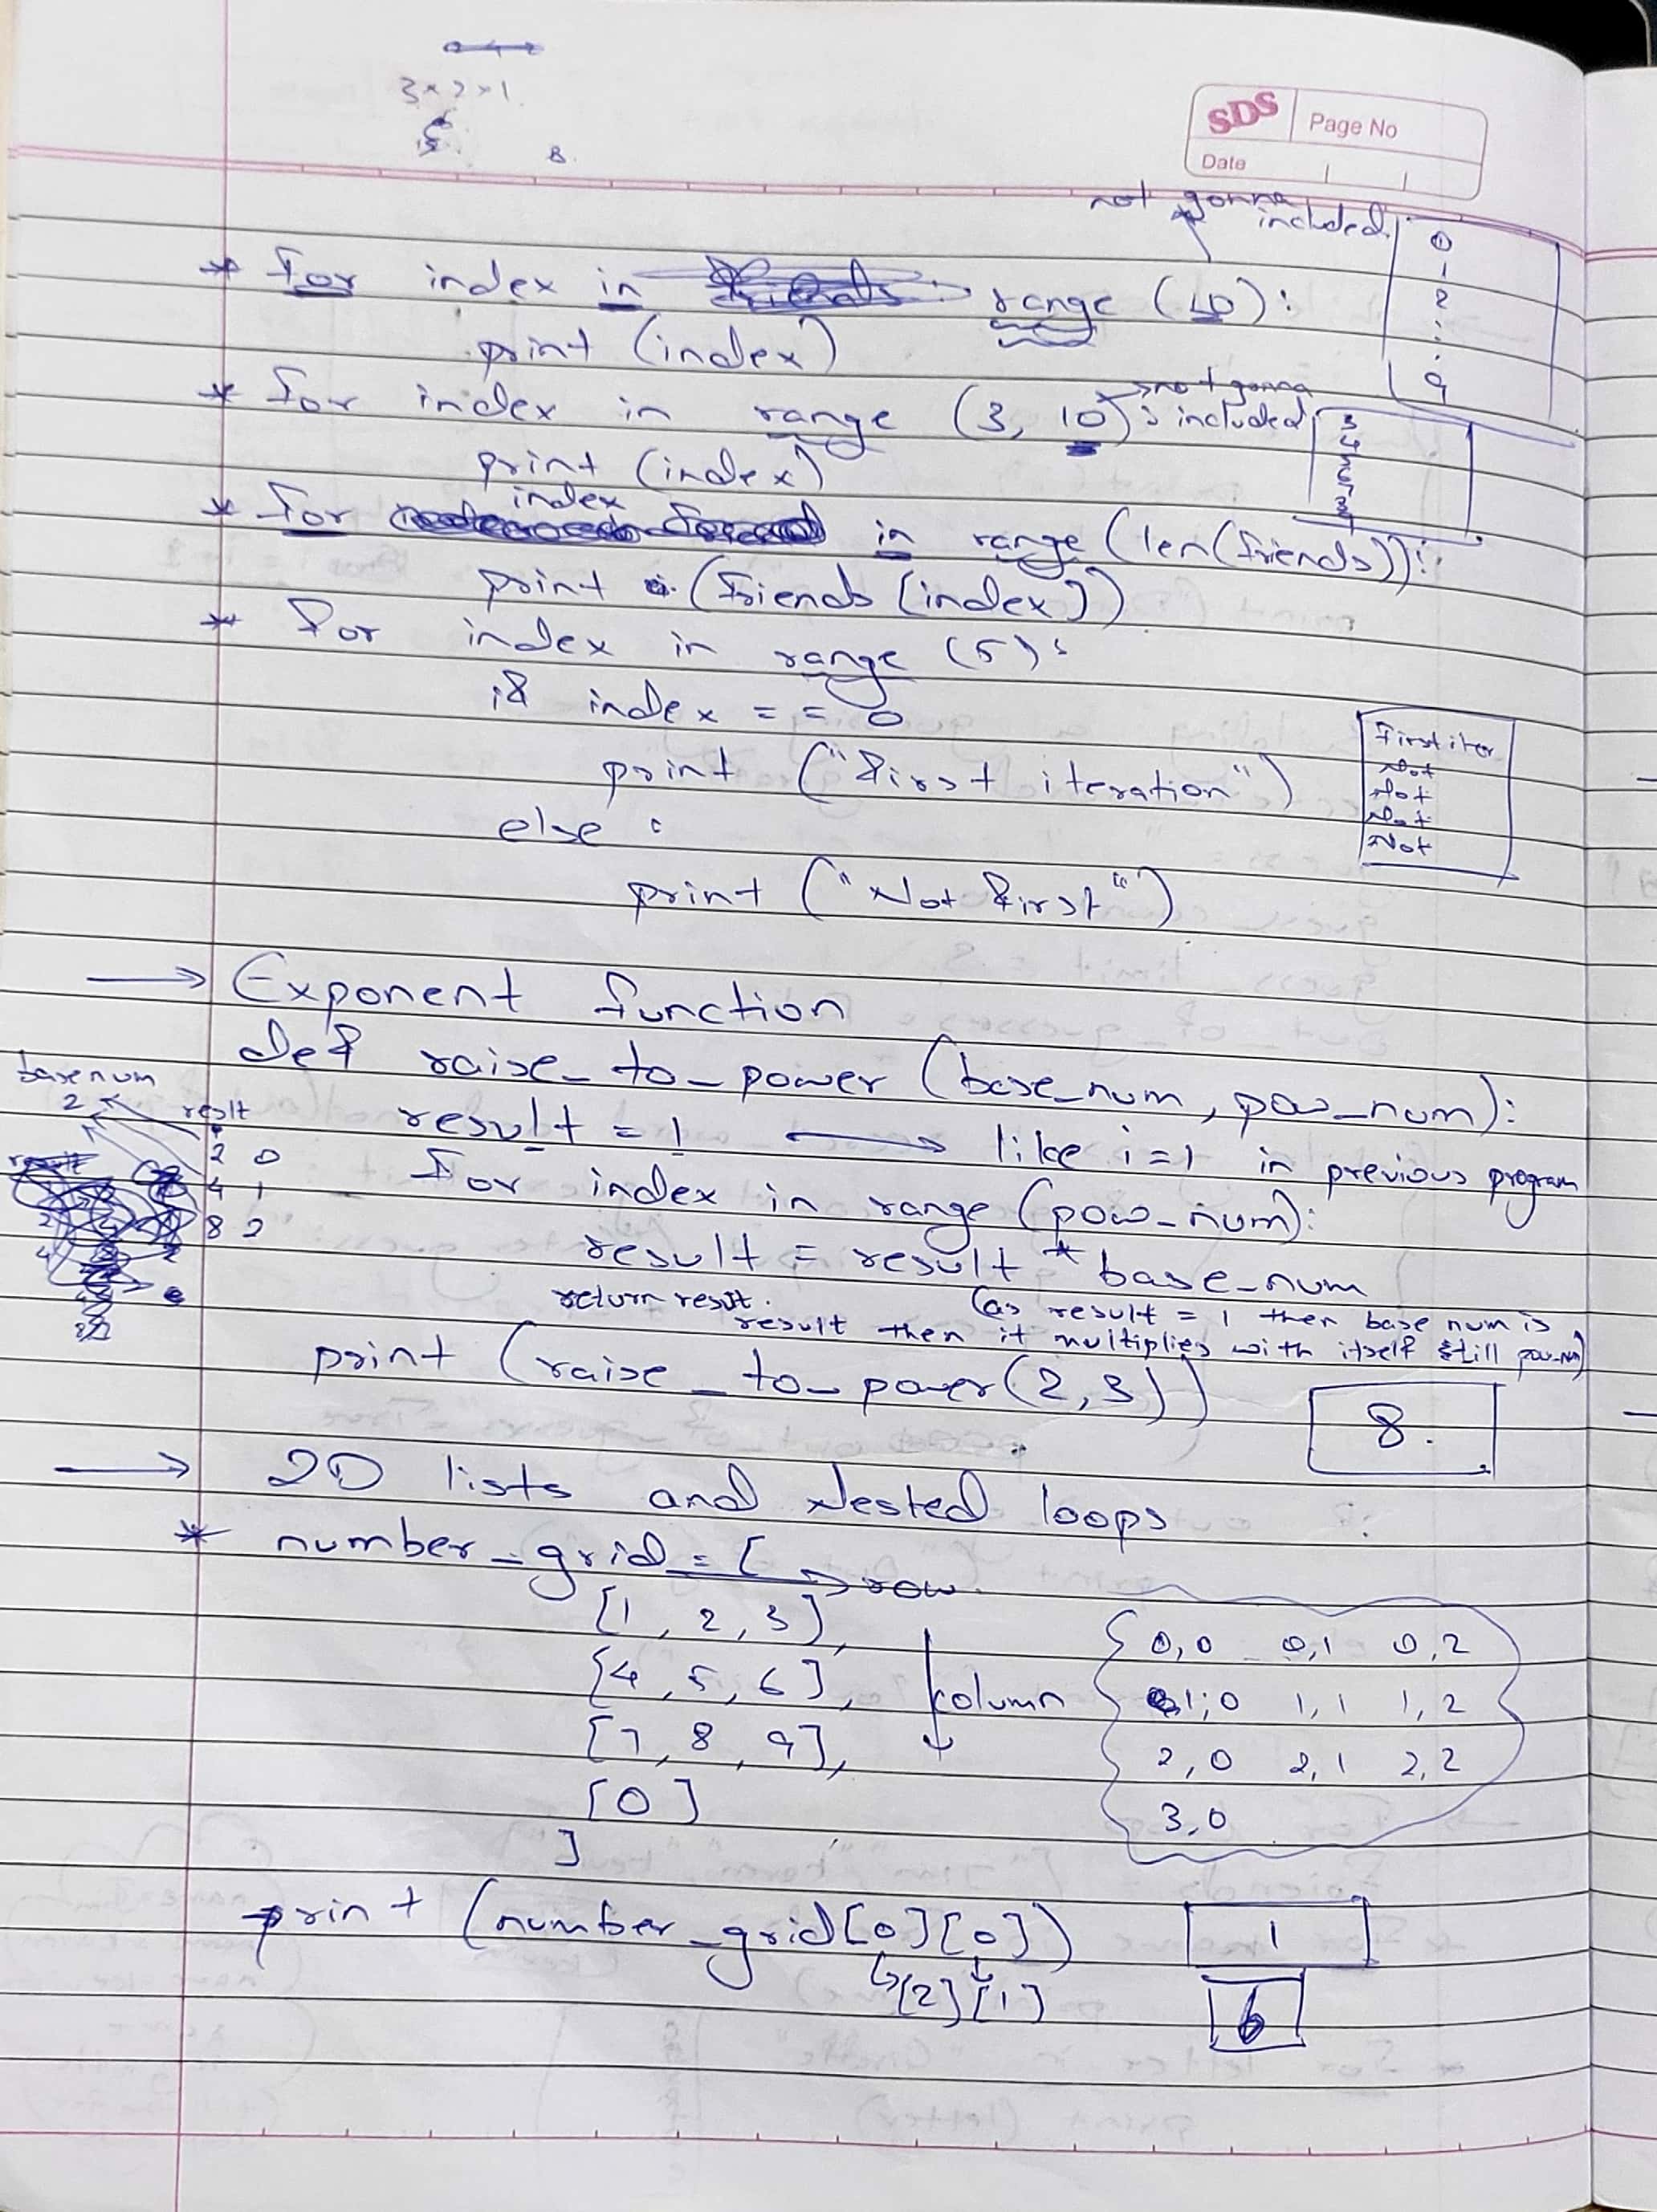 3 × 2 × 1
SDS Page No
Date
not gonna included
* For index in range (10):
print (index)
0
1
2
:
.
9
* For index in range (3, 10): not gonna included
print (index)
3
4
5
6
7
8
9
* For index in range (len(friends)):
print (friends [index])
* For index in range (5):
if index == 0
print ("first iteration")
else :
print ("Not first")
First iter
Not
Not
Not
Not
→ Exponent function
def raise_to_power (base_num, pow_num):
result = 1 → like i=1 in previous program
For index in range (pow_num):
result = result * base_num
return result. (as result = 1 then base num is
result then it multiplies with itself still pow_num)
print (raise_to_power(2,3))
8.
base num
2
reslt
2 0
4 1
8 2
→ 2D lists and Nested loops
* number_grid = [ → row
[1, 2, 3],
[4, 5, 6], column
[7, 8, 9],
[0]
]
0,0 0,1 0,2
1,0 1,1 1,2
2,0 2,1 2,2
3,0
print (number_grid[0][0]) 1
[2][1] 6